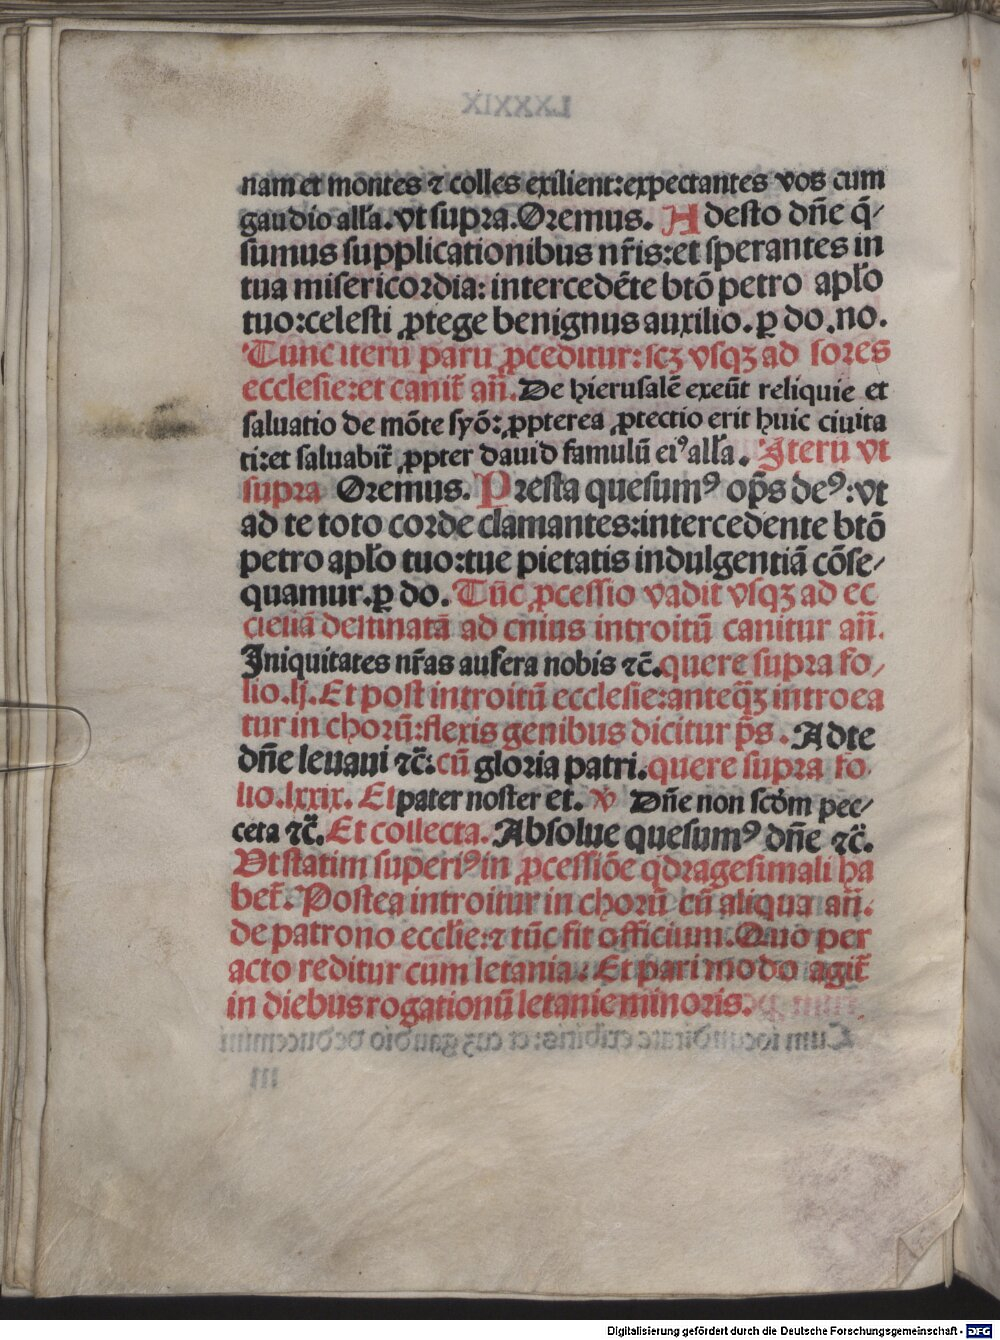 nam et montes ⁊ colles exilient: expectantes vos cum
gaudio all'a. vt supra. Oremus. Adesto dñe q̃-
sumus supplicationibus nr̃is: et sperantes in
tua misericordia: intercedẽte btõ petro apl'o
tuo: celesti ꝓtege benignus auxilio. ꝑ do. no.
Tunc iterũ parũ ꝓceditur: scꝫ vsqꝫ ad fores
ecclesie: et canit̃ añ. De hierusalẽ exeũt reliquie et
saluatio de mõte syõ: ꝓpterea ꝓtectio erit huic ciuita
ti: et saluabit̃ ꝓpter dauid famulũ eiꝰ all'a. Iterũ vt
supra Oremus. Presta quesumꝰ op̃s deꝰ: vt
ad te toto corde clamantes: intercedente btõ
petro apl'o tuo: tue pietatis indulgentiã cõse-
quamur. ꝑ do. Tũc ꝓcessio vadit vsqꝫ ad ec
clesiã destinatã ad cuius introitũ canitur añ.
Iniquitates nr̃as aufera nobis ⁊c̃. quere supra fo-
lio. lj. Et post introitũ ecclesie: anteq̃ꝫ introea
tur in chorũ: flexis genibus dicitur p̃s. Ad te
dñe leuaui ⁊c̃: cũ gloria patri. quere supra fo
lio. lxxix. Et pater noster et. ℣ Dñe non scd'm pec-
ceta ⁊c̃. Et collecta. Absolue quesumꝰ dñe ⁊c̃.
Vt statim superiꝰ in ꝓcessiõe q̃dragesimali ha
bet̃. Postea introitur in chorũ cũ aliqua añ.
de patrono eccl'ie: ⁊ tũc fit officium. Quo per
acto reditur cum letania. Et pari modo agit̃
in diebus rogationũ letanie minoris.